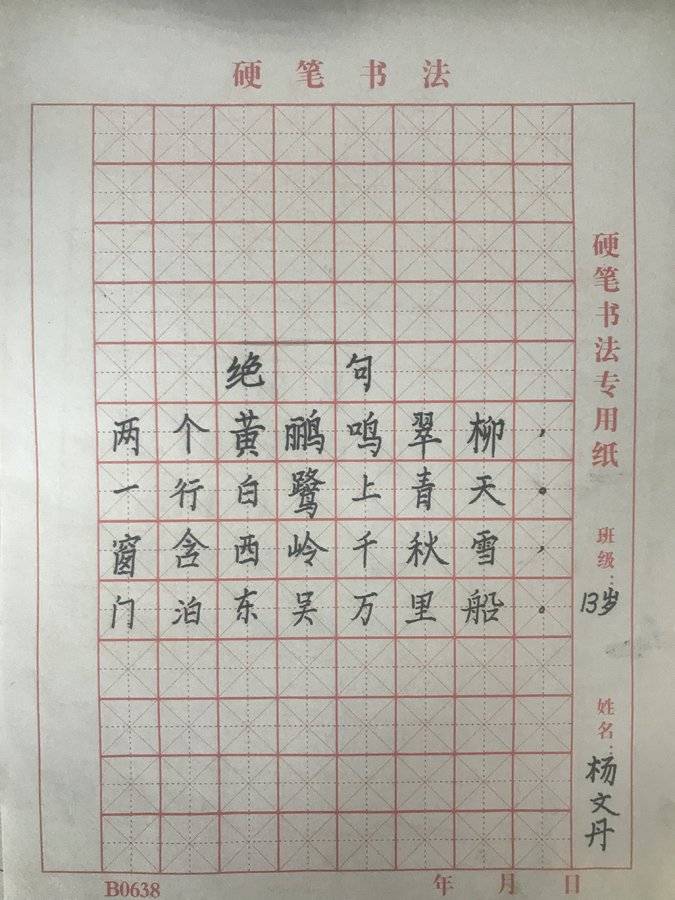 硬笔书法
绝句
两个黄鹂鸣翠柳，
一行白鹭上青天。
窗含西岭千秋雪，
门泊东吴万里船。
硬笔书法专用纸
班级：13岁
姓名：杨文丹
B0638
年月日